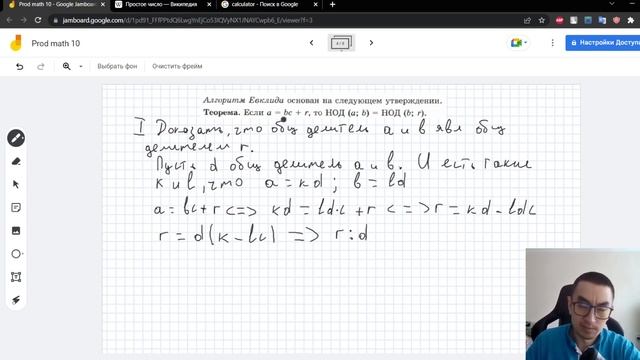 Prod math 10 - Google Jamboard
Простое число — Википедия
calculator - Поиск в Google
jamboard.google.com
viewer?f=3
Prod math 10
4 / 8
Настройки Доступа
Выбрать фон
Очистить фрейм
Алгоритм Евклида основан на следующем утверждении.
Теорема. Если a = bc + r, то НОД (a; b) = НОД (b; r).
I Доказать, что общ делитель a и b явл общ
делителем r.
Пусть d общ делитель a и b. И есть такие
k и l, что a = kd ; b = ld
a = bc + r <=> kd = ld·c + r <=> r = kd - ldc
r = d(k - lc) => r ⋮ d